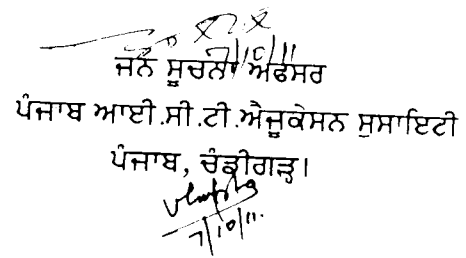 7/10/11
ਜਨ ਸੂਚਨਾ ਅਫਸਰ
ਪੰਜਾਬ ਆਈ.ਸੀ.ਟੀ.ਐਜੂਕੇਸਨ ਸੁਸਾਇਟੀ
ਪੰਜਾਬ, ਚੰਡੀਗੜ੍ਹ।
7/10/11.